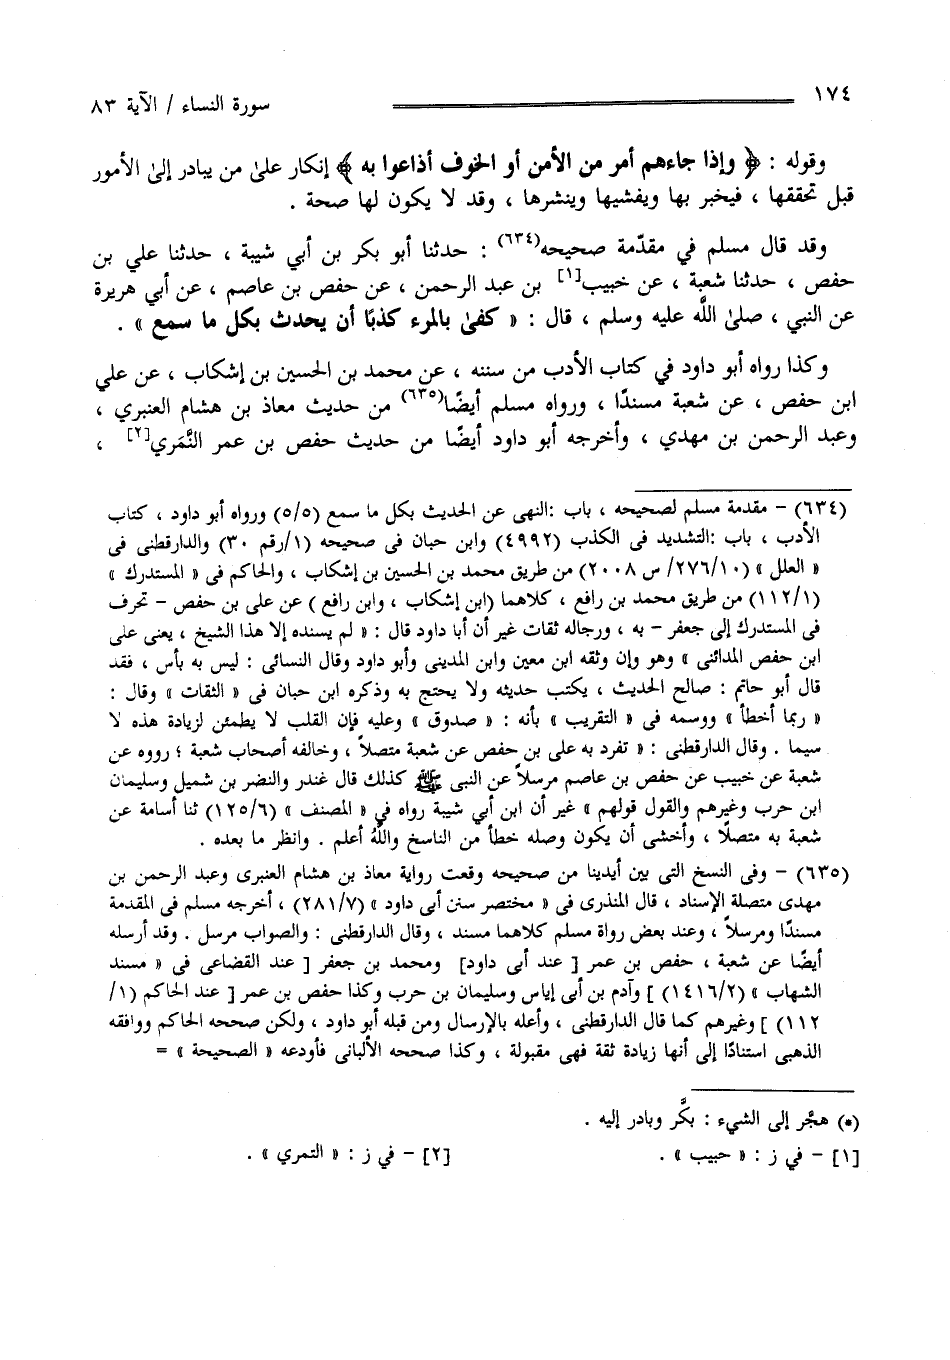 ١٧٤
سورة النساء / الآية ٨٣
وقوله : ﴿ وإذا جاءهم أمر من الأمن أو الخوف أذاعوا به ﴾ إنكار علىٰ من يبادر إلىٰ الأمور
قبل تحققها ، فيخبر بها ويفشيها وينشرها ، وقد لا يكون لها صحة .
وقد قال مسلم في مقدّمة صحيحه(٦٣٤) : حدثنا أبو بكر بن أبي شيبة ، حدثنا علي بن
حفص ، حدثنا شعبة ، عن خبيب[١] بن عبد الرحمن ، عن حفص بن عاصم ، عن أبي هريرة
عن النبي ، صلىٰ اللَّه عليه وسلم ، قال : « كفىٰ بالمرء كذبًا أن يحدث بكل ما سمع » .
وكذا رواه أبو داود في كتاب الأدب من سننه ، عن محمد بن الحسين بن إشكاب ، عن علي
ابن حفص ، عن شعبة مسندًا ، ورواه مسلم أيضًا(٦٣٥) من حديث معاذ بن هشام العنبري ،
وعبد الرحمن بن مهدي ، وأخرجه أبو داود أيضًا من حديث حفص بن عمر النَّمَري[٢] ،
(٦٣٤) – مقدمة مسلم لصحيحه ، باب :النهى عن الحديث بكل ما سمع (٥/٥) ورواه أبو داود ، كتاب
الأدب ، باب :التشديد فى الكذب (٤٩٩٢) وابن حبان فى صحيحه (١/رقم ٣٠) والدارقطنى فى
« العلل » (٢٧٦/١٠/ س ٢٠٠٨) من طريق محمد بن الحسين بن إشكاب ، والحاكم فى « المستدرك »
(١١٢/١) من طريق محمد بن رافع ، كلاهما (ابن إشكاب ، وابن رافع ) عن على بن حفص – تحرف
فى المستدرك إلى جعفر – به ، ورجاله ثقات غير أن أبا داود قال : « لم يسنده إلا هذا الشيخ ، يعنى على
ابن حفص المدائنى » وهو وإن وثقه ابن معين وابن المدينى وأبو داود وقال النسائى : ليس به بأس ، فقد
قال أبو حاتم : صالح الحديث ، يكتب حديثه ولا يحتج به وذكره ابن حبان فى « الثقات » وقال :
« ربما أخطأ » ووسمه فى « التقريب » بأنه : « صدوق » وعليه فإن القلب لا يطمئن لزيادة هذه لا
سيما . وقال الدارقطنى : « تفرد به على بن حفص عن شعبة متصلاً ، وخالفه أصحاب شعبة ؛ رووه عن
شعبة عن خبيب عن حفص بن عاصم مرسلاً عن النبى ﷺ كذلك قال غندر والنضر بن شميل وسليمان
ابن حرب وغيرهم والقول قولهم » غير أن ابن أبي شيبة رواه في « المصنف » (١٢٥/٦) ثنا أسامة عن
شعبة به متصلًا ، وأخشى أن يكون وصله خطأ من الناسخ واللَّهُ أعلم . وانظر ما بعده .
(٦٣٥) – وفى النسخ التى بين أيدينا من صحيحه وقعت رواية معاذ بن هشام العنبرى وعبد الرحمن بن
مهدى متصلة الإسناد ، قال المنذرى فى « مختصر سنن أبى داود » (٢٨١/٧) ، أخرجه مسلم فى المقدمة
مسندًا ومرسلاً ، وعند بعض رواة مسلم كلاهما مسند ، وقال الدارقطنى : والصواب مرسل . وقد أرسله
أيضًا عن شعبة ، حفص بن عمر [ عند أبى داود] ومحمد بن جعفر [ عند القضاعى فى « مسند
الشهاب » (١٤١٦/٢) ] وآدم بن أبى إياس وسليمان بن حرب وكذا حفص بن عمر [ عند الحاكم (١/
١١٢) ] وغيرهم كما قال الدارقطنى ، وأعله بالإرسال ومن قبله أبو داود ، ولكن صححه الحاكم ووافقه
الذهبى استنادًا إلى أنها زيادة ثقة فهى مقبولة ، وكذا صححه الألبانى فأودعه « الصحيحة » =
(*) هجَّر إلى الشيء : بكَّر وبادر إليه .
[١] – في ز : « حبيب » .
[٢] – في ز : « التمري » .